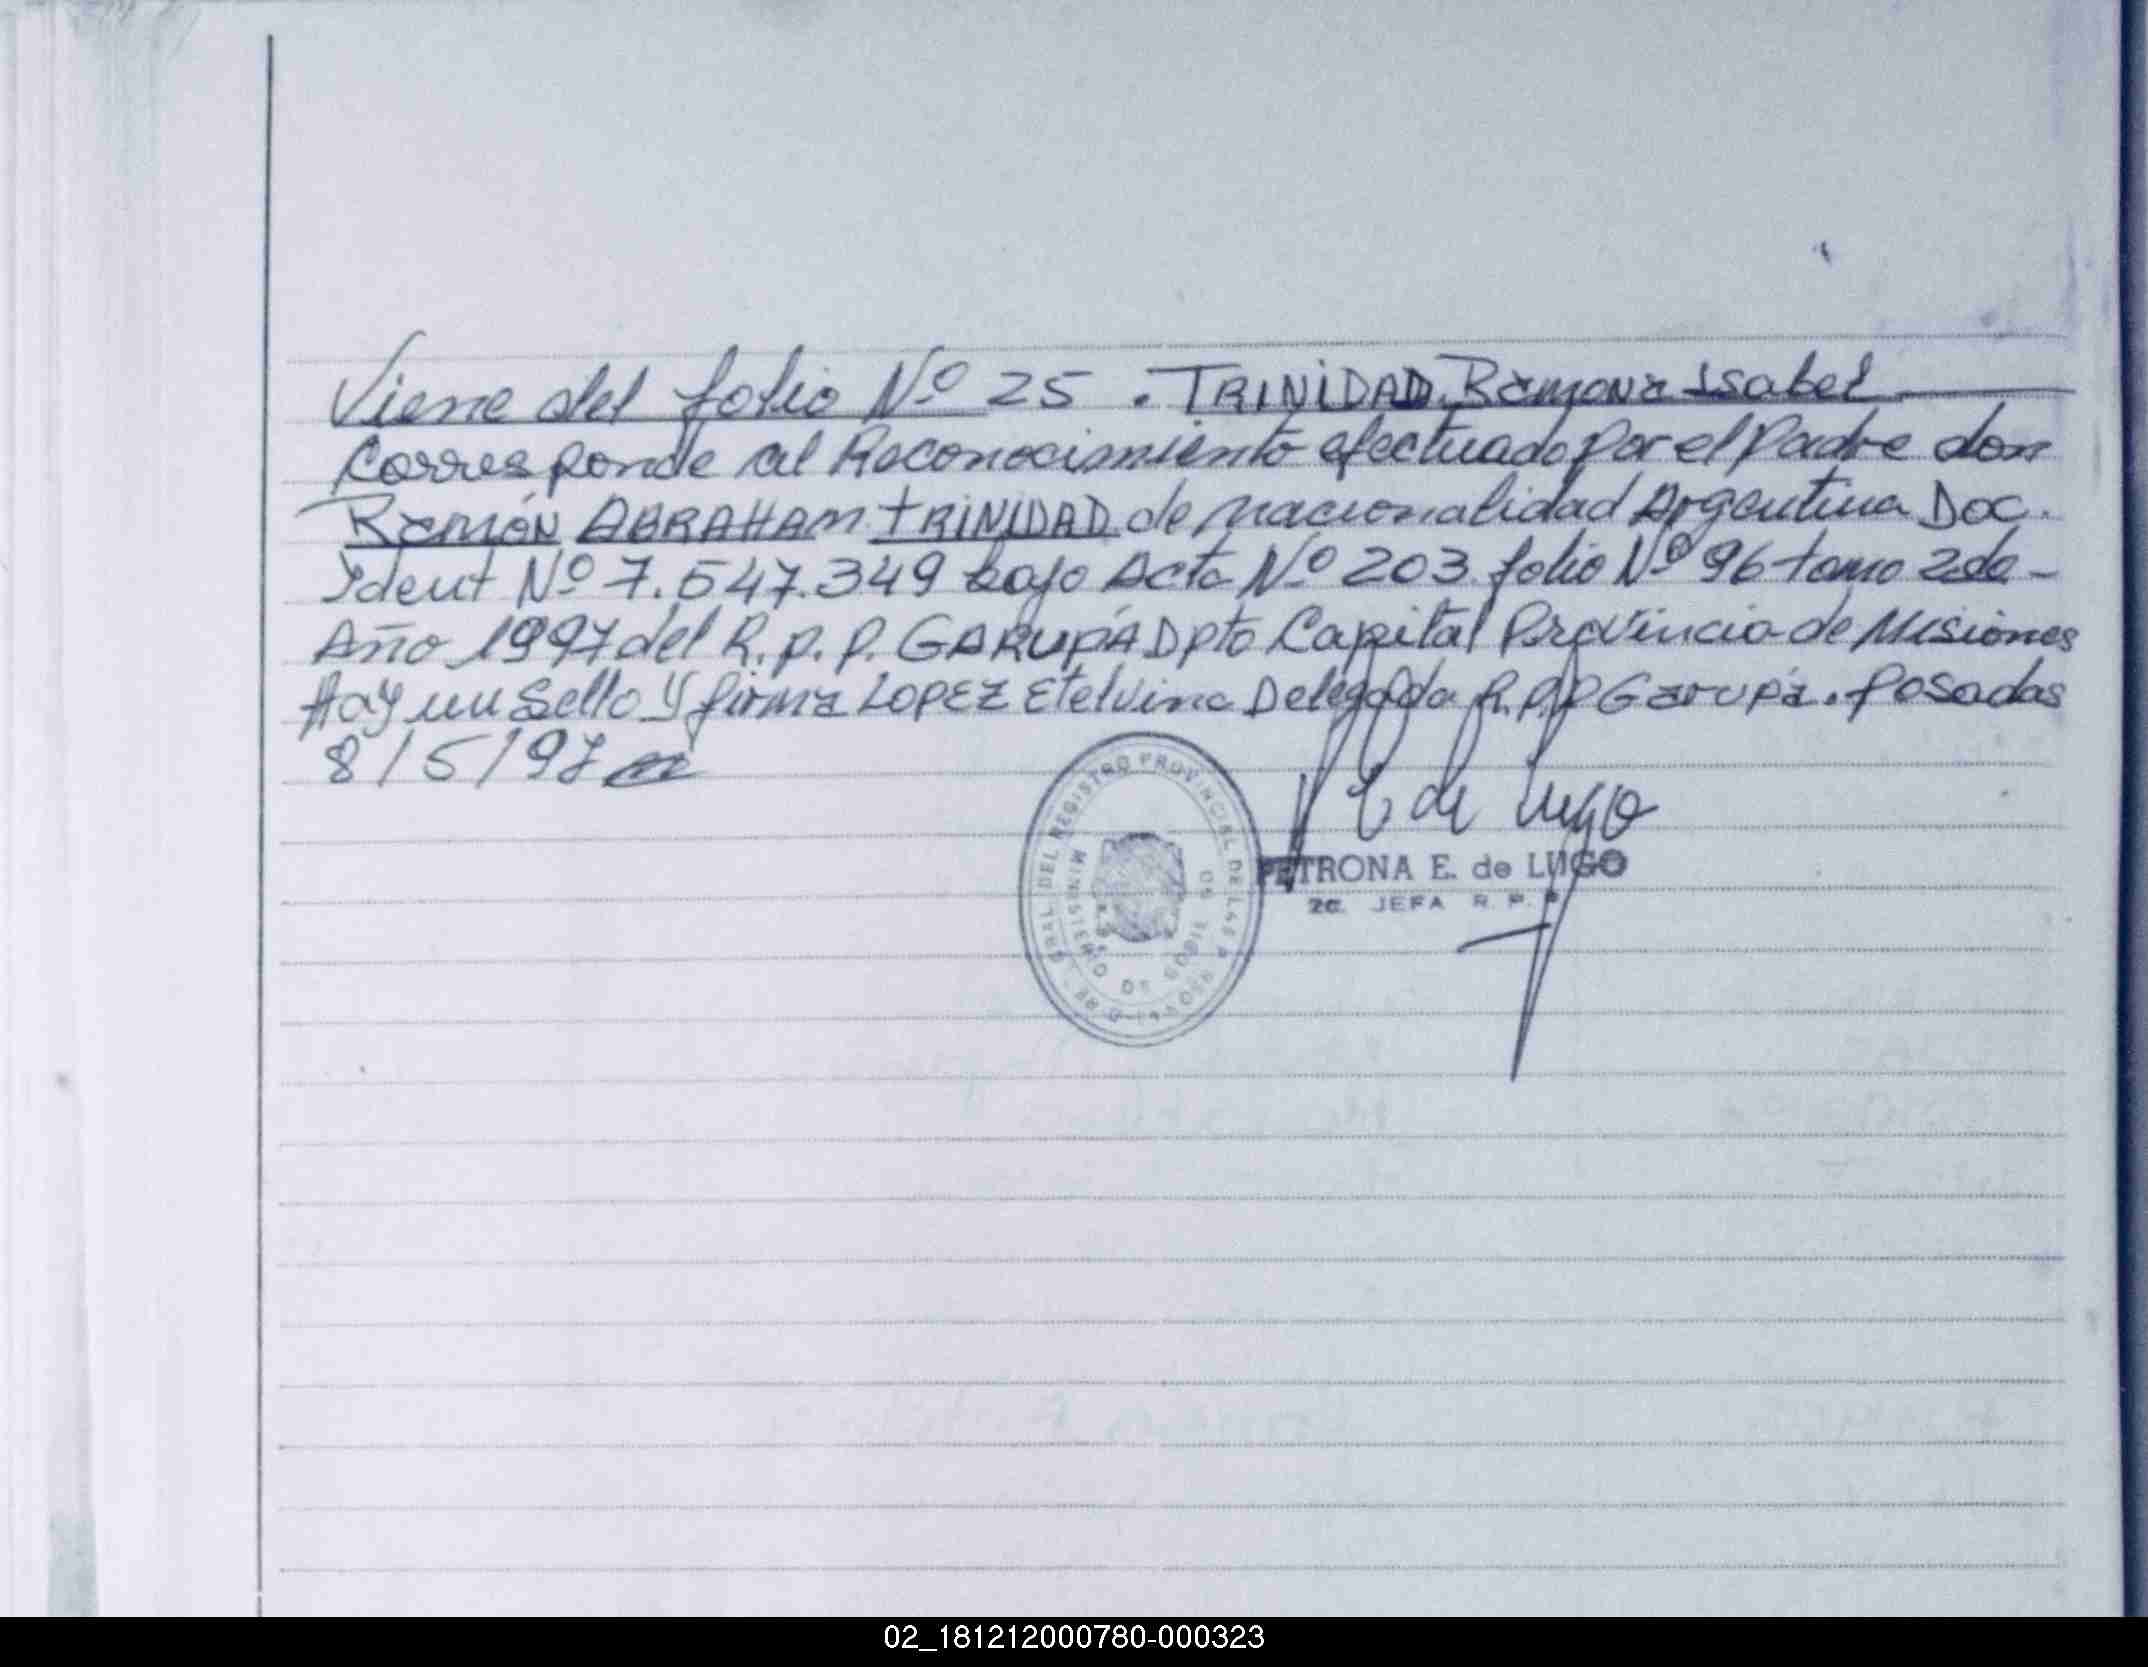 Viene del folio Nº 25 . TRINIDAD. Ramona Isabel
Corresponde al Reconocimiento efectuado por el Padre don
Ramón ABRAHAM TRINIDAD de nacionalidad Argentina Doc.
Ident Nº 7.547.349 bajo Acta Nº 203 folio Nº 96 tomo 2do -
Año 1997 del R.P.P. GARUPÁ Dpto Capital Provincia de Misiones
Hay un Sello y firma LOPEZ Etelvina Delegada R.P.P Garupá. Posadas
8/5/97
GRAL. DEL REGISTRO PROVINCIAL DE LAS P
MINISTERIO DE GOBIE
E de Lugo
PETRONA E. de LUGO
JEFA R. P. P
02_181212000780-000323